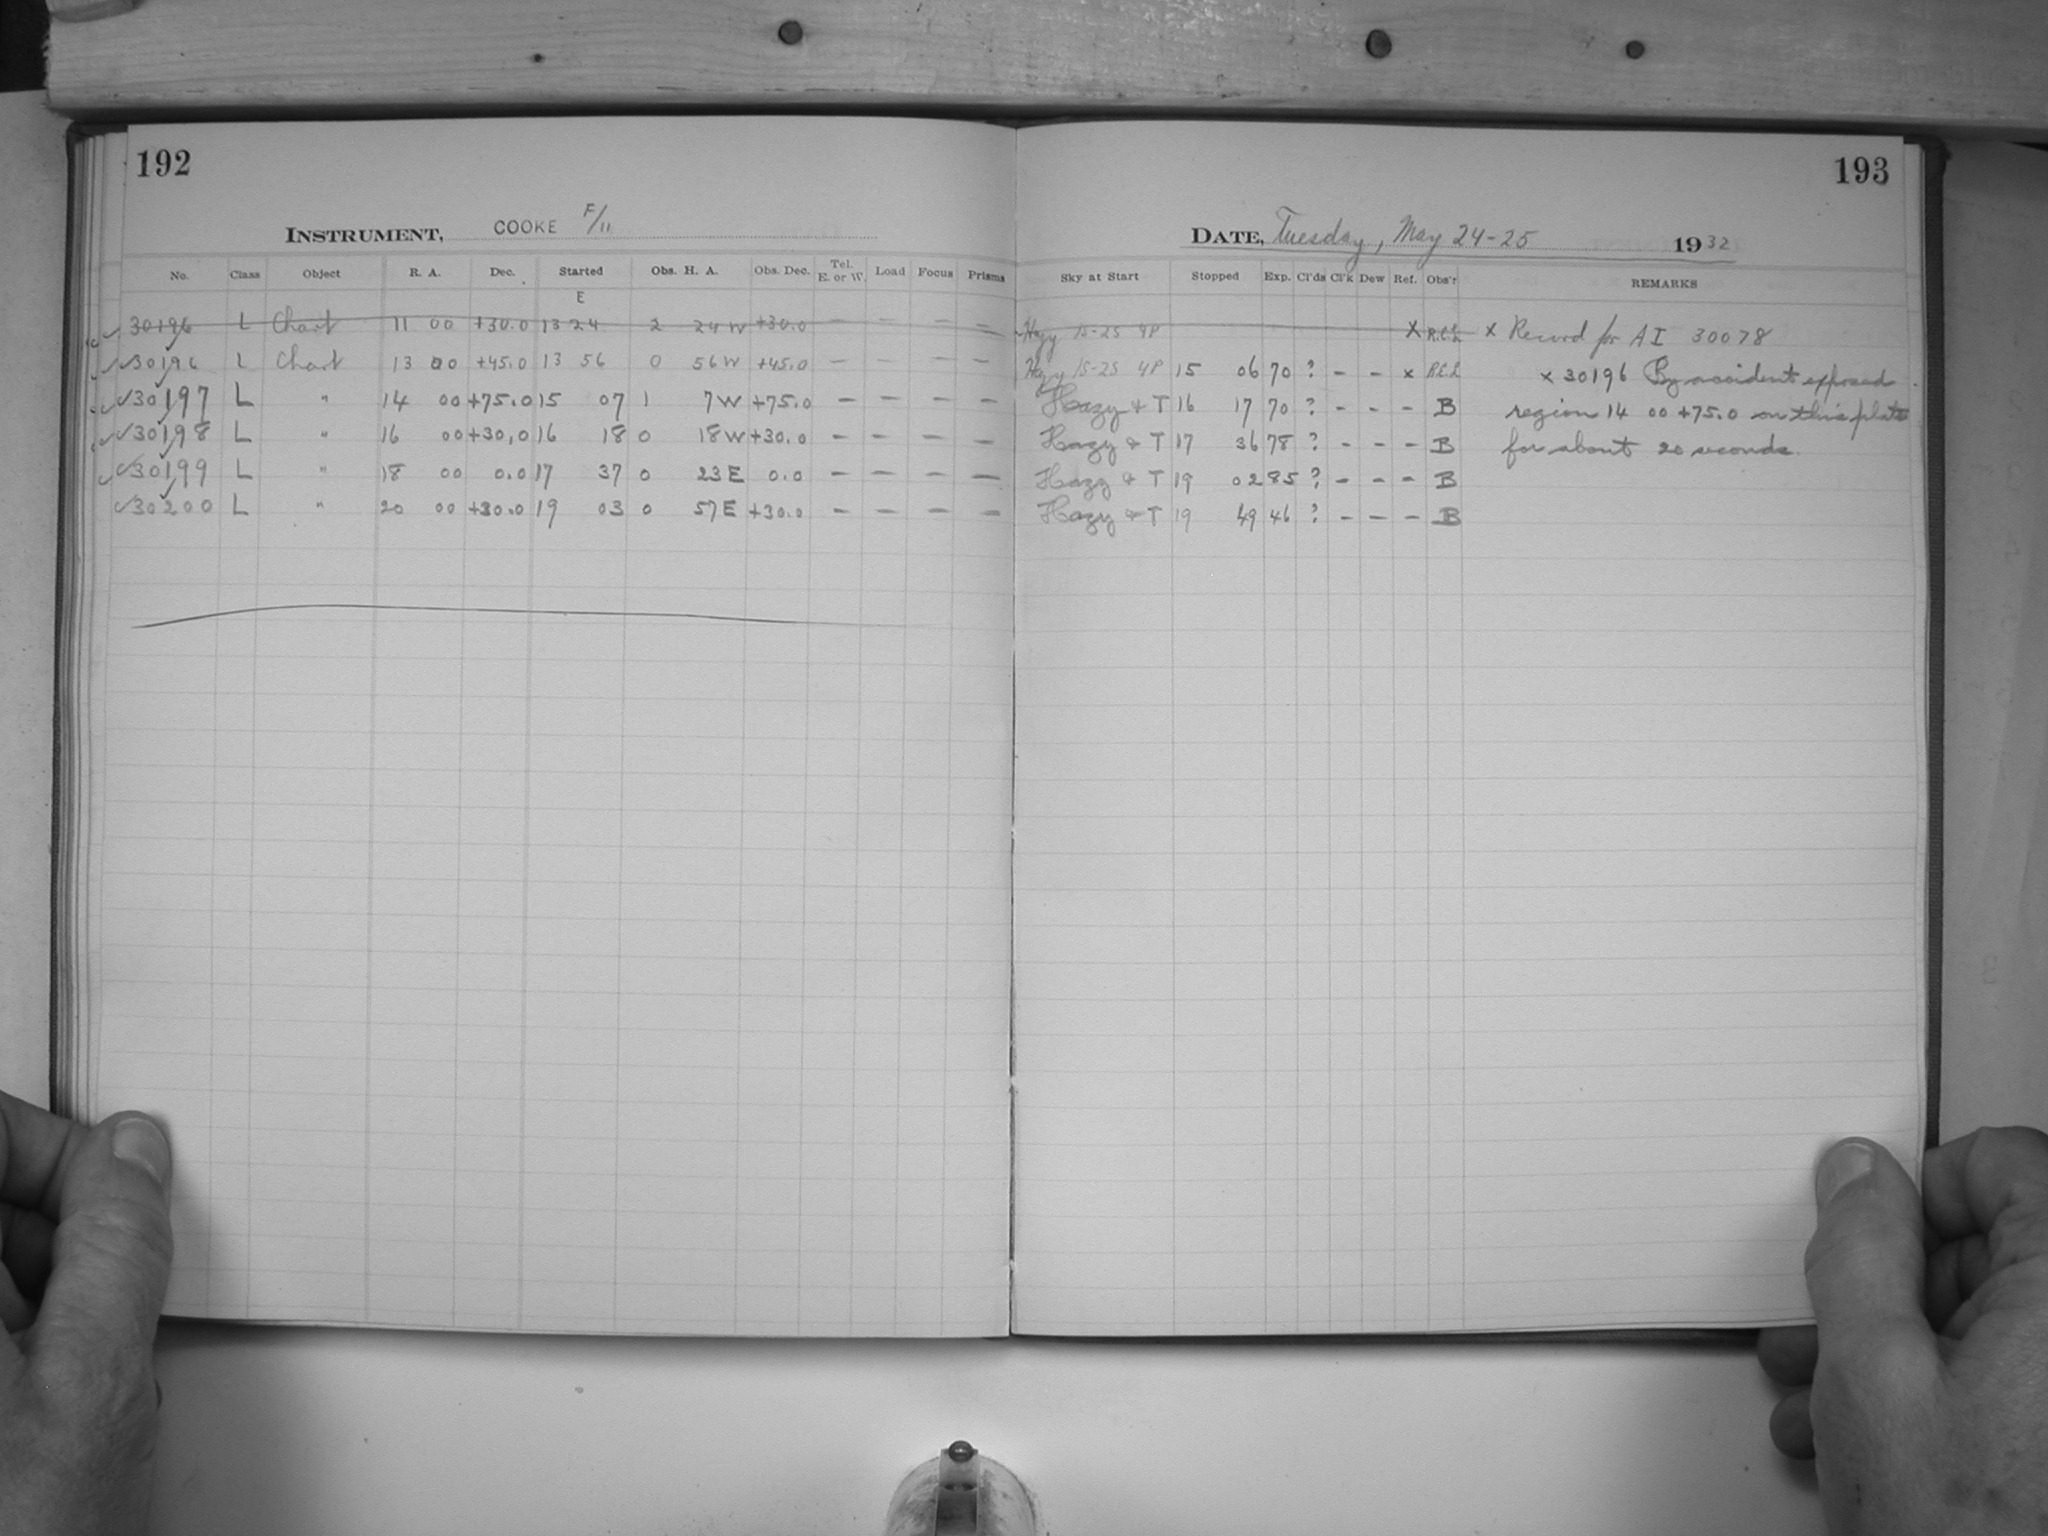 192
INSTRUMENT, COOKE F/11
No. Class Object R. A. Dec. Started Obs. H. A. Obs. Dec. Tel. E. or W. Load Focus Prisms
E
30196 L Chart 11 00 +30.0 13 24 2 24 W +30.0 — — — —
30196 L Chart 13 00 +45.0 13 56 0 56 W +45.0 — — — —
30197 L " 14 00 +75.0 15 07 1 7 W +75.0 — — — —
30198 L " 16 00 +30.0 16 18 0 18 W +30.0 — — — —
30199 L " 18 00 0.0 17 37 0 23 E 0.0 — — — —
30200 L " 20 00 +30.0 19 03 0 57 E +30.0 — — — —
193
DATE, Tuesday, May 24-25 1932
Sky at Start Stopped Exp. Cl'ds Cl'k Dew Ref. Obs'r REMARKS
Hazy 15-25 4P X R.E.L X Record for AI 30078
Hazy 15-25 4P 15 06 70 ? - - x R.E.L x 30196 By accident exposed
Hazy & T 16 17 70 ? - - - B region 14 00 +75.0 on this plate
Hazy & T 17 36 78 ? - - - B for about 20 seconds.
Hazy & T 19 02 85 ? - - - B
Hazy & T 19 49 46 ? - - - B